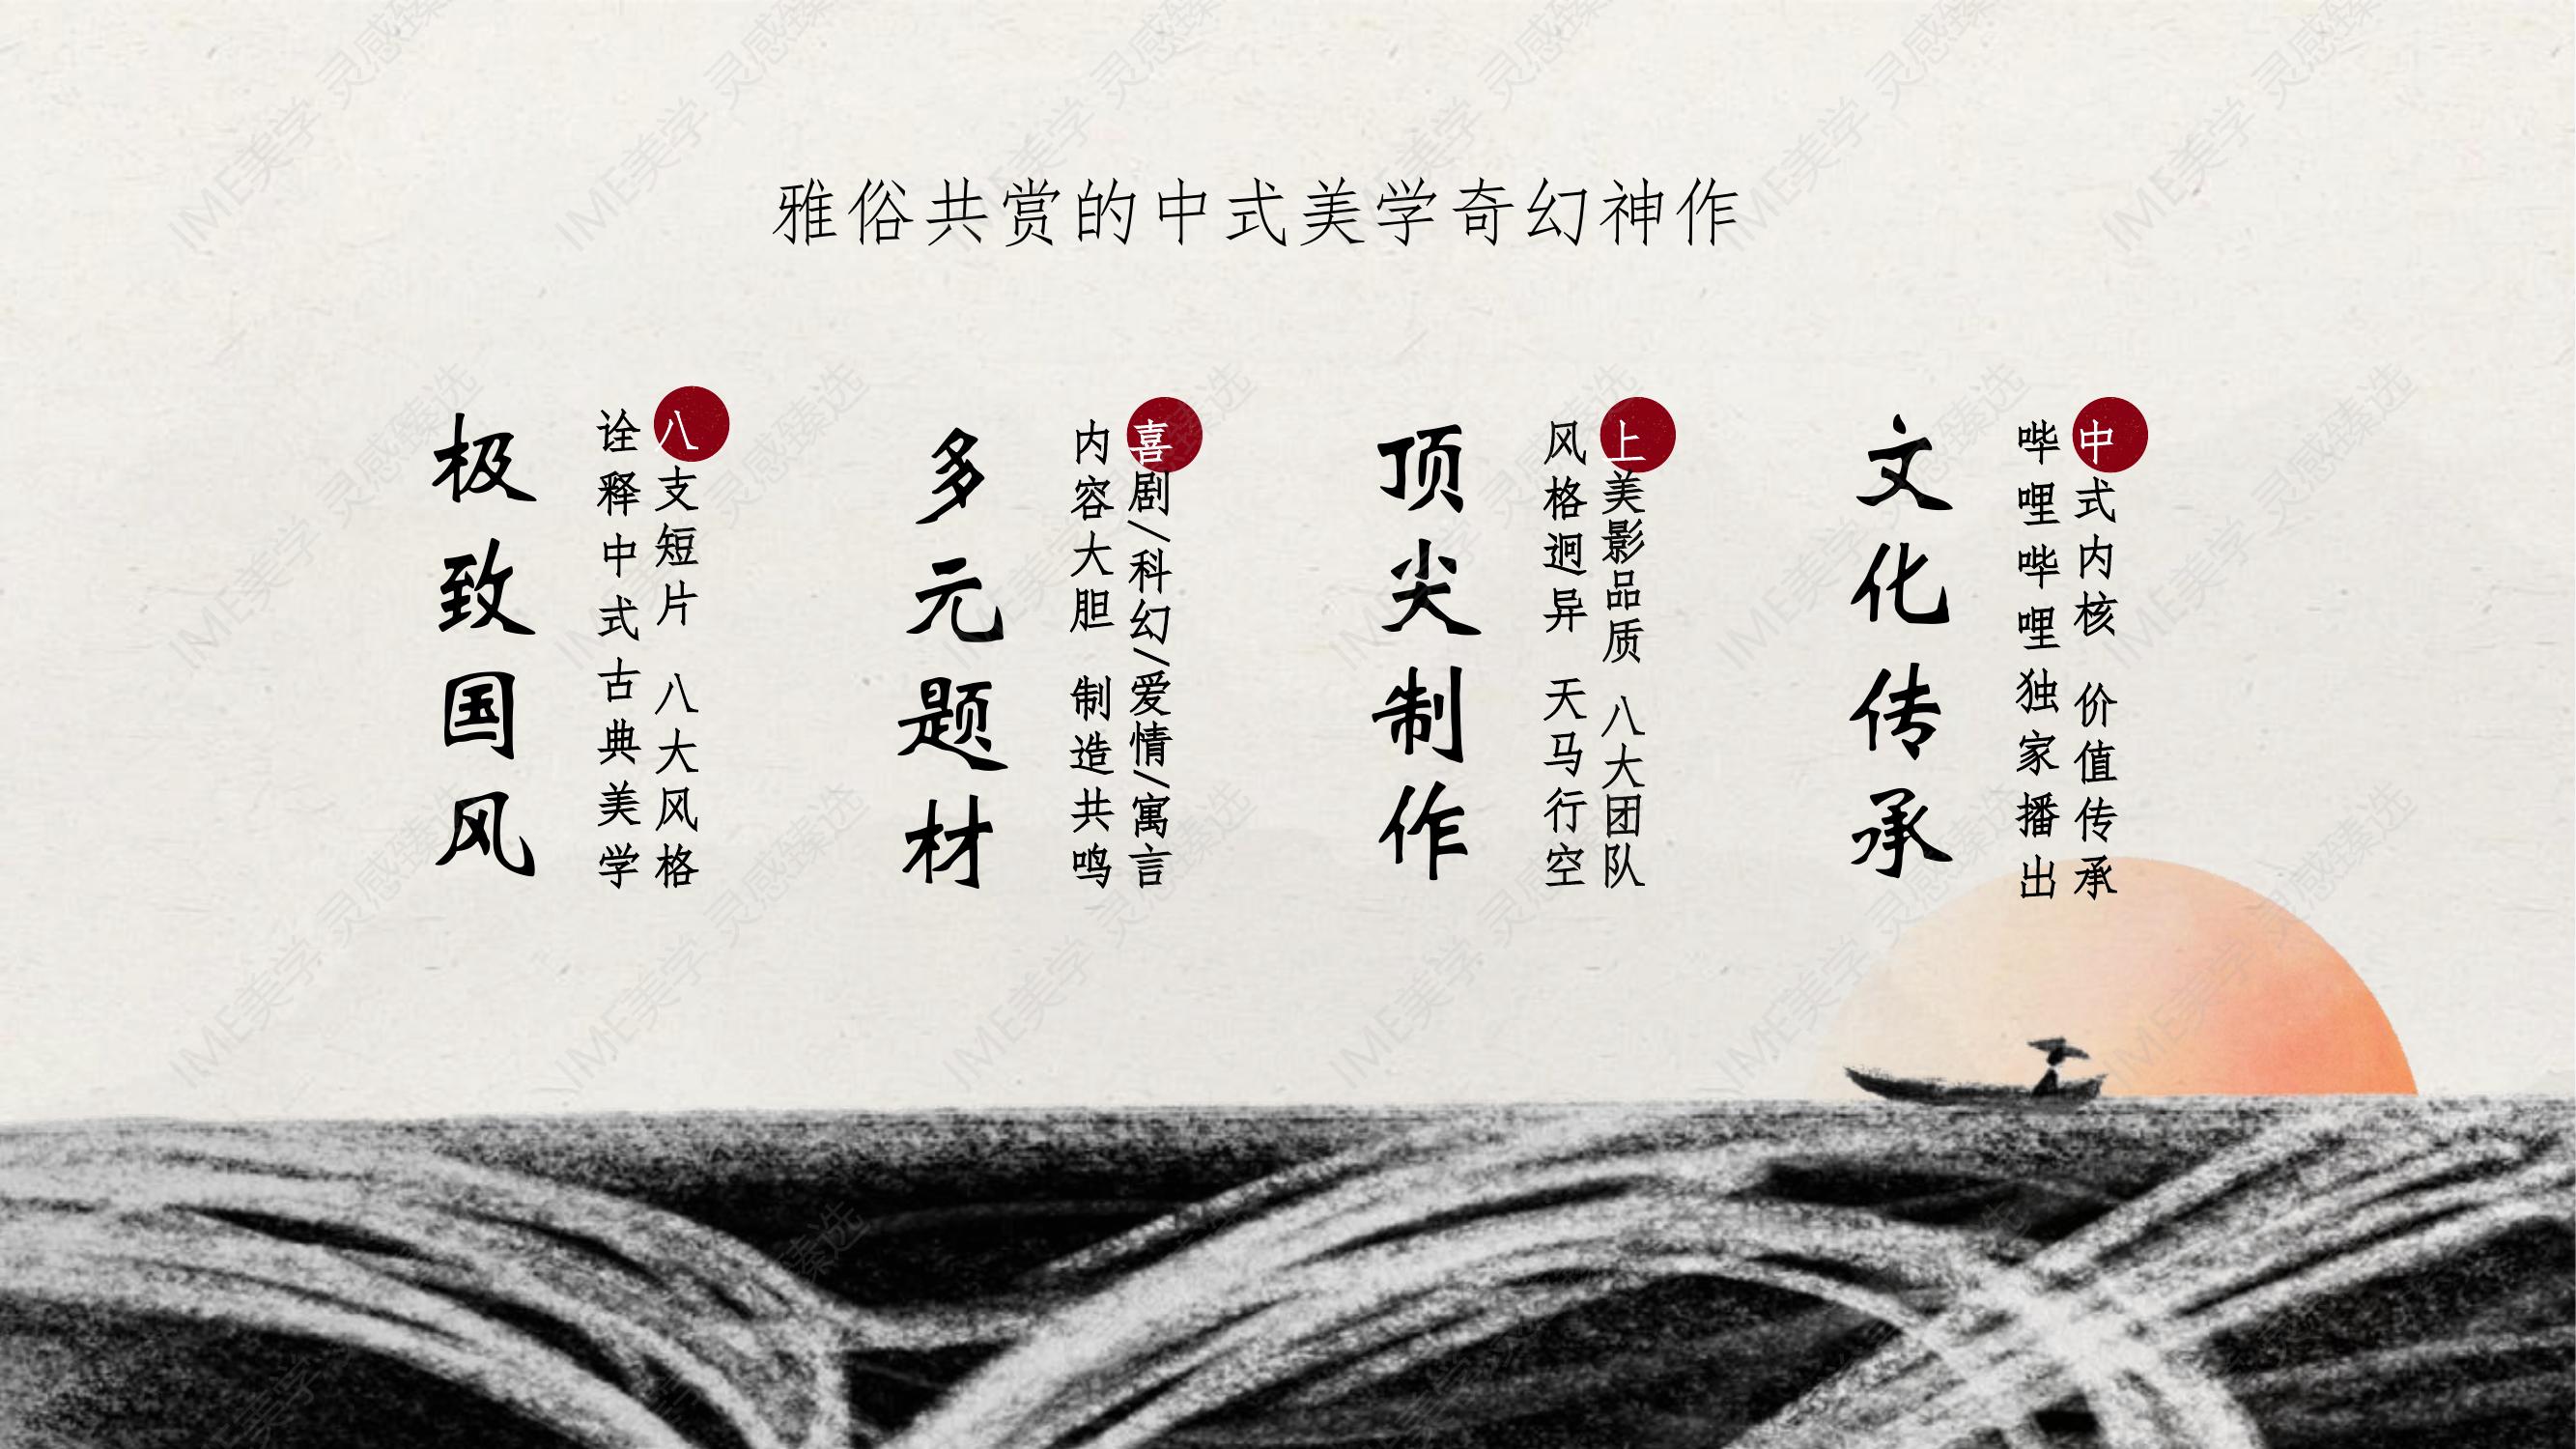 雅俗共赏的中式美学奇幻神作
极致国风
八支短片 八大风格
诠释中式古典美学
多元题材
喜剧/科幻/爱情/寓言
内容大胆 制造共鸣
顶尖制作
上美影品质 八大团队
风格迥异 天马行空
文化传承
中式内核 价值传承
哔哩哔哩独家播出
IME美学 灵感臻选